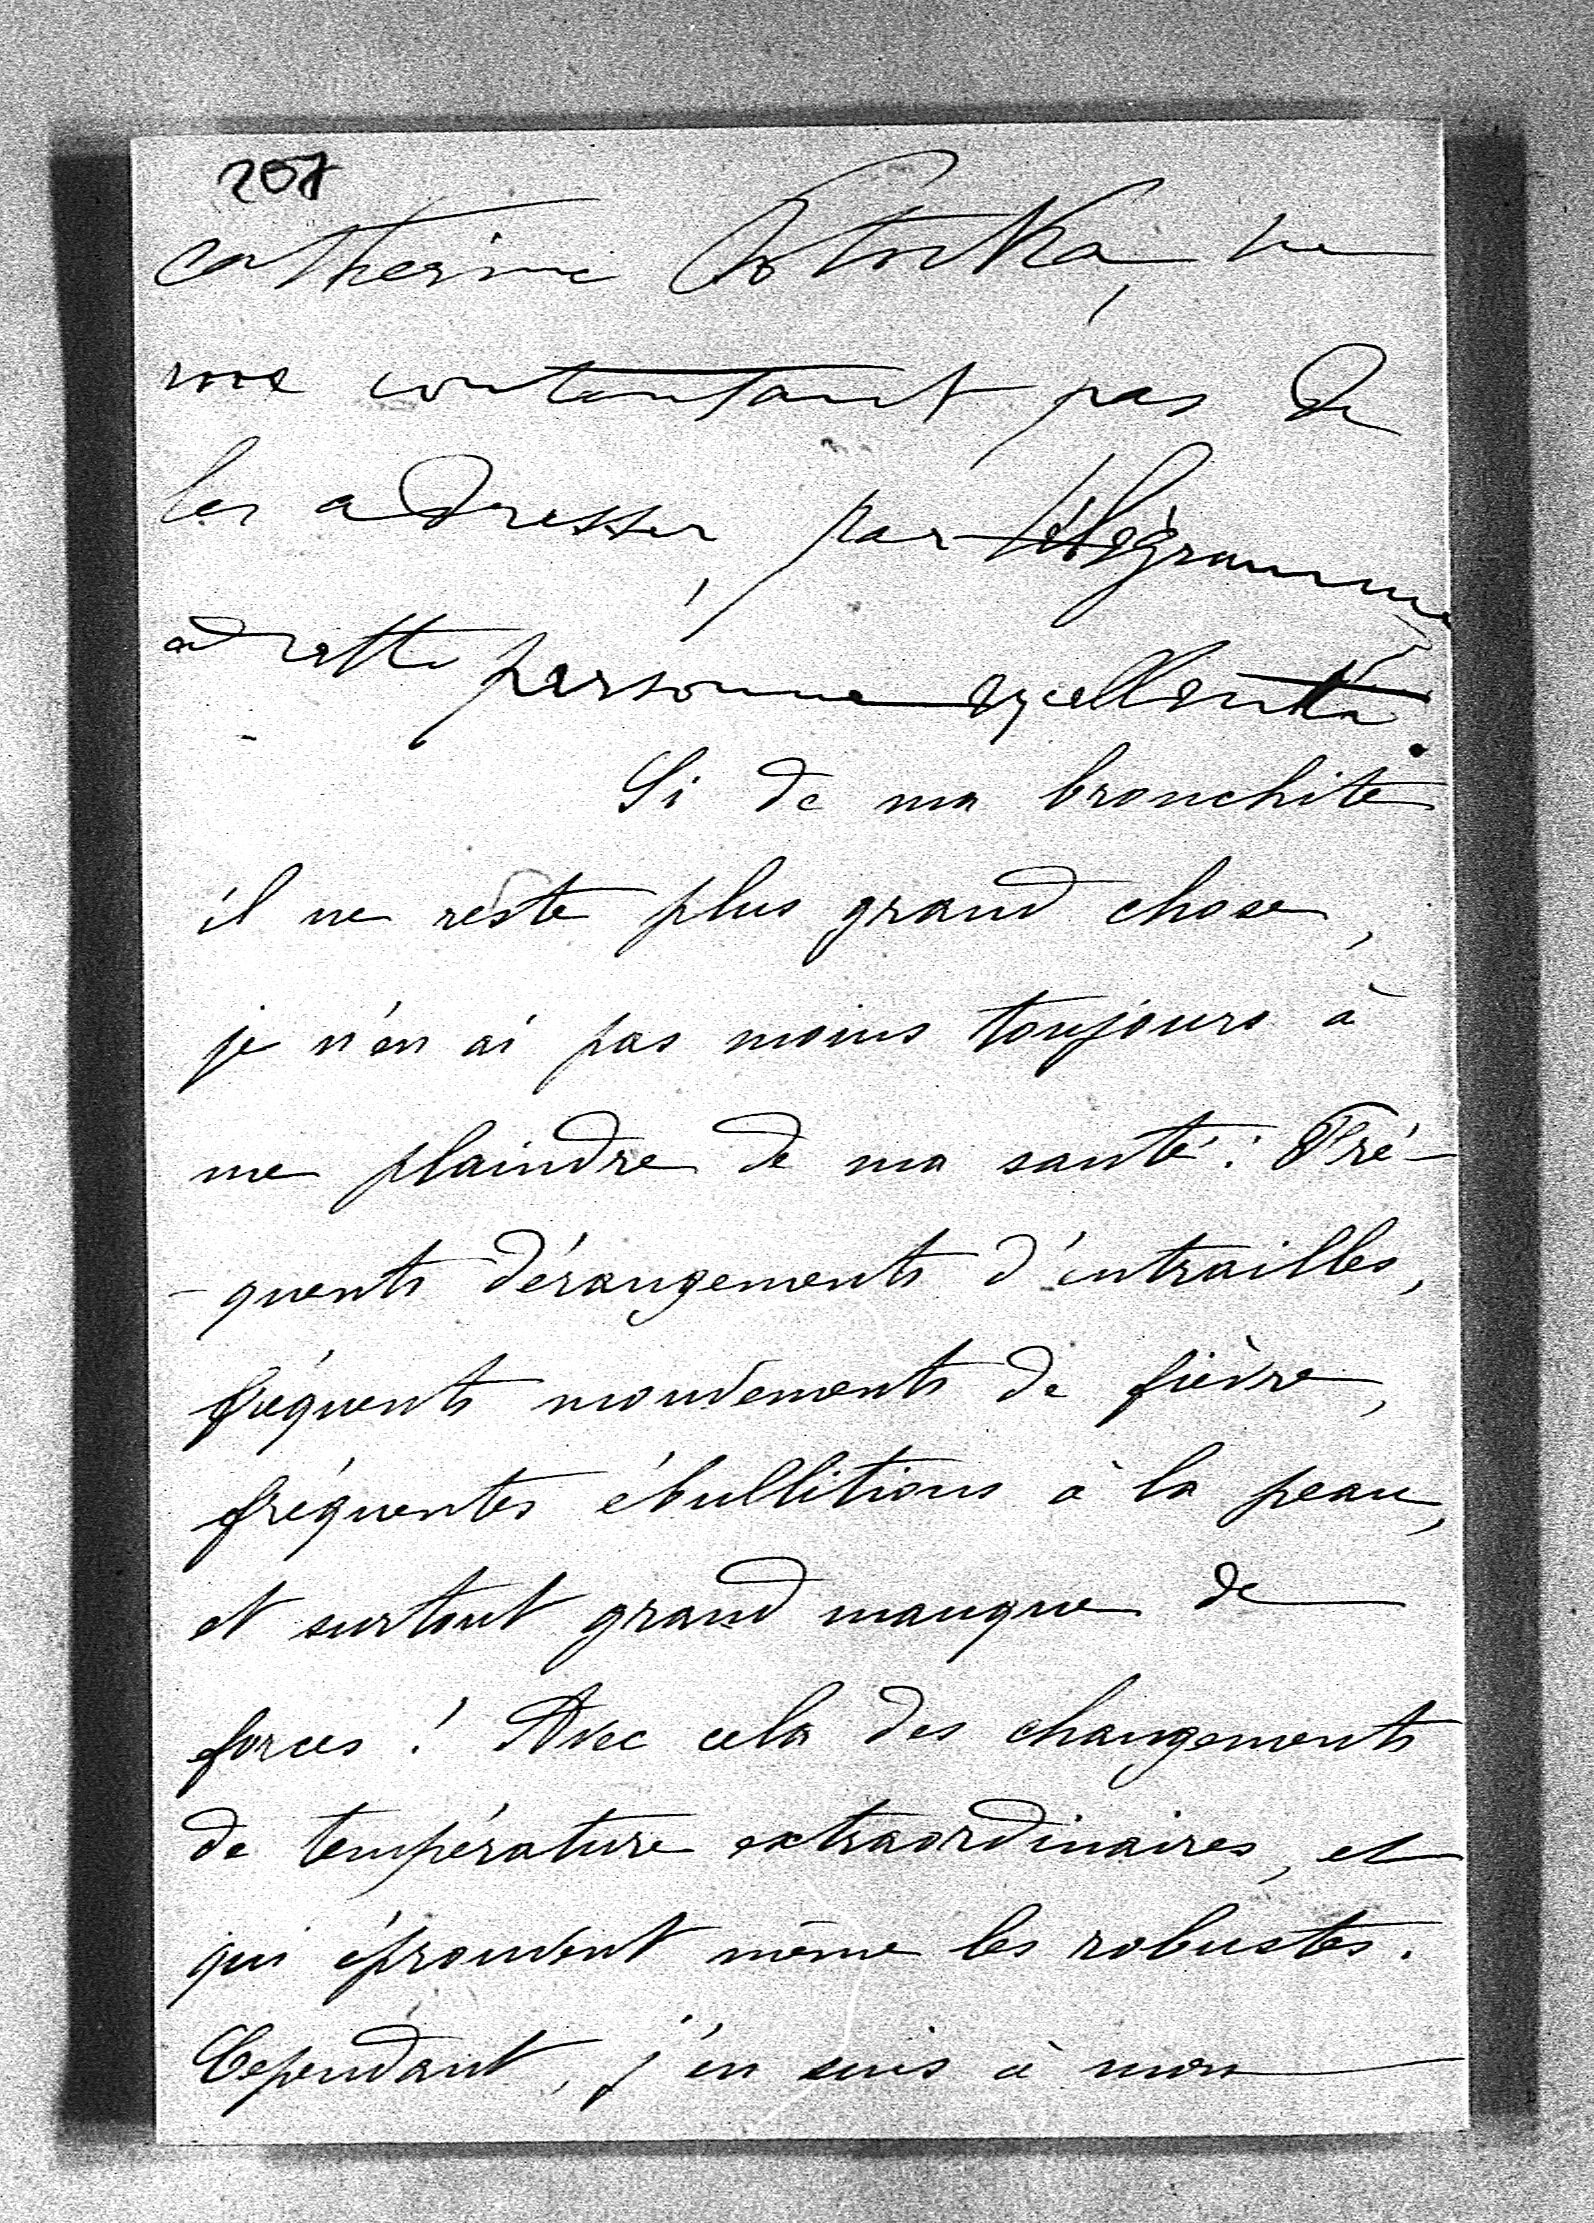 207
Catherine Potocka, ne
me contentant pas de
les adresser, par télégramme,
à cette personne excellente.
Si de ma bronchite
il ne reste plus grand chose,
je n'en ai pas moins toujours à
me plaindre de ma santé : Fré-
-quents dérangements d'entrailles,
fréquents mouvements de fièvre,
fréquentes ébullitions à la peau,
et surtout grand manque de
forces ! Avec cela des changements
de température extraordinaires, et
qui éprouvent même les robustes.
Cependant, j'en suis à mon